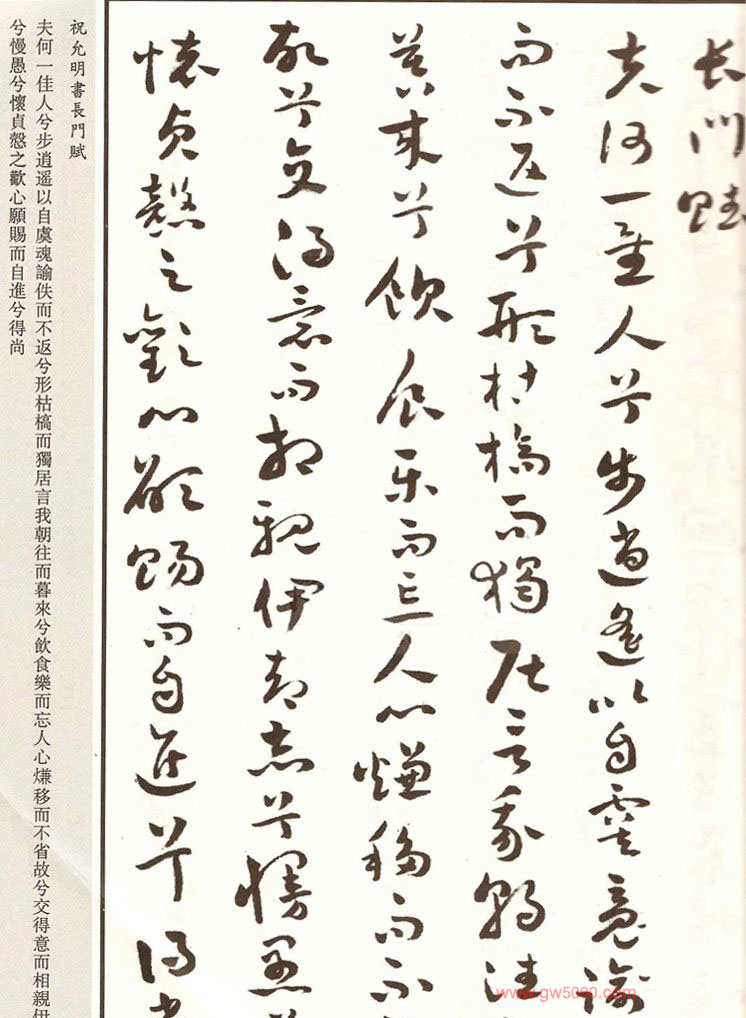 長門賦
夫何一佳人兮步逍遙以自虞魂諭
而不返兮形枯槁而獨居言我朝往
暮來兮飲食樂而忘人心熑移而不
故兮交得意而相親伊志兮慢愚
懷貞慤之歡心願賜而自進兮得尚
祝允明書長門賦
夫何一佳人兮步逍遥以自虞魂諭佚而不返兮形枯槁而獨居言我朝往而暮來兮飲食樂而忘人心熑移而不省故兮交得意而相親伊
兮慢愚兮懷貞慤之歡心願賜而自進兮得尚
www.gw5000.com